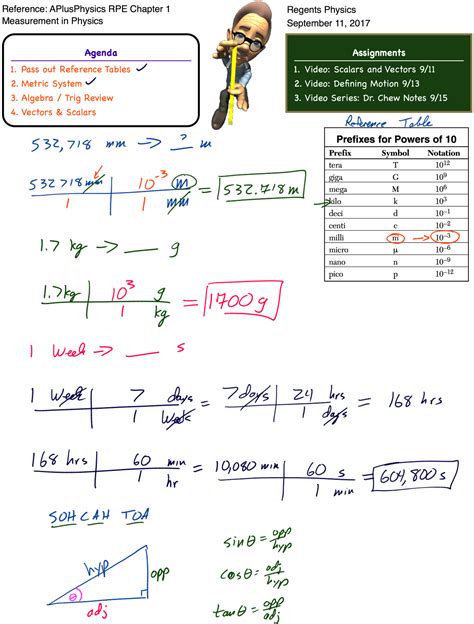 Reference: APlusPhysics RPE Chapter 1
Measurement in Physics
Regents Physics
September 11, 2017
Agenda
1. Pass out Reference Tables ✓
2. Metric System ✓
3. Algebra / Trig Review
4. Vectors & Scalars
Assignments
1. Video: Scalars and Vectors 9/11
2. Video: Defining Motion 9/13
3. Video Series: Dr. Chew Notes 9/15
Reference Table
Prefixes for Powers of 10
Prefix Symbol Notation
tera T 10¹²
giga G 10⁹
mega M 10⁶
kilo k 10³
deci d 10⁻¹
centi c 10⁻²
milli m → 10⁻³
micro μ 10⁻⁶
nano n 10⁻⁹
pico p 10⁻¹²
532,718 mm → ? m
532718 mm | 10⁻³ m = 532.718 m
1 | 1 mm
1.7 kg → ___ g
1.7 kg | 10³ g = 1700 g
1 kg
1 week → ___ s
1 Week | 7 days = 7 days | 24 hrs = 168 hrs
1 Week | 1 days
168 hrs | 60 min = 10,080 min | 60 s = 604,800 s
1 hr | 1 min
SOH CAH TOA
hyp
opp
θ
adj
sin θ = opp/hyp
cos θ = adj/hyp
tan θ = opp/adj